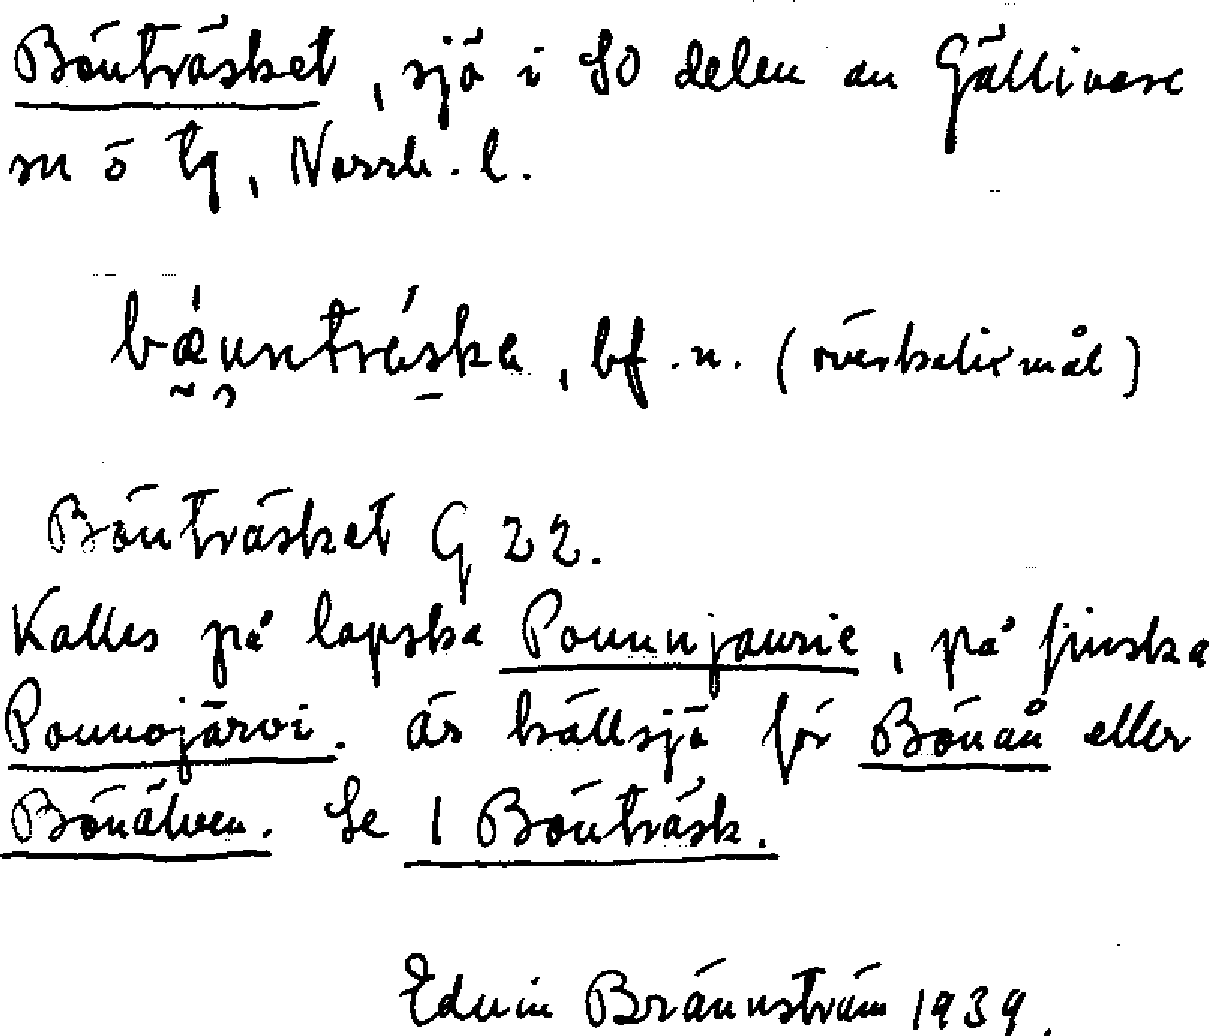 Bönträsket, sjö i SO delen av Gällivare
sn o tg, Norrb. l.
bf. n. (överkalixmål)
Bönträsket G 22.
Kallas på lapska Pounnjaurie, på finska
Pounnojärvi. Är källsjö för Bönån eller
Bönälven. Se 1 Bönträsk.
Edvin Brännström 1939.